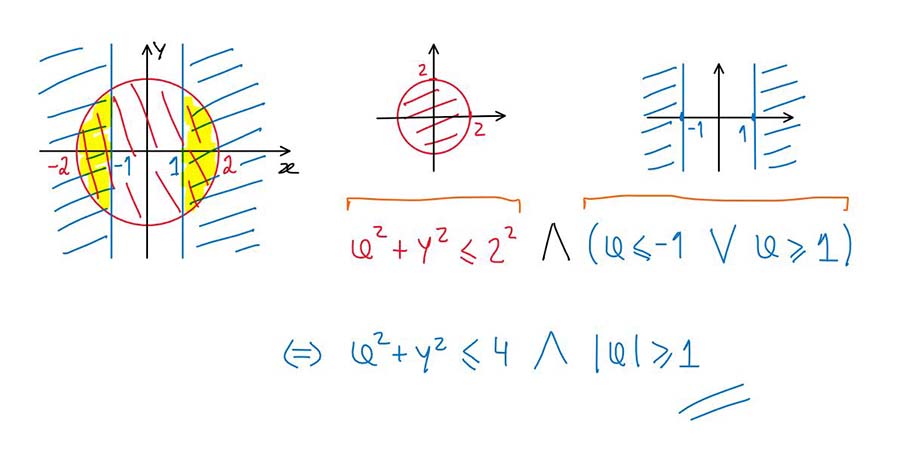 y
-2 -1 1 2 x
2
2
-1 1
x² + y² ⩽ 2² ∧ (x ⩽ -1 ∨ x ⩾ 1)
⇔ x² + y² ⩽ 4 ∧ |x| ⩾ 1